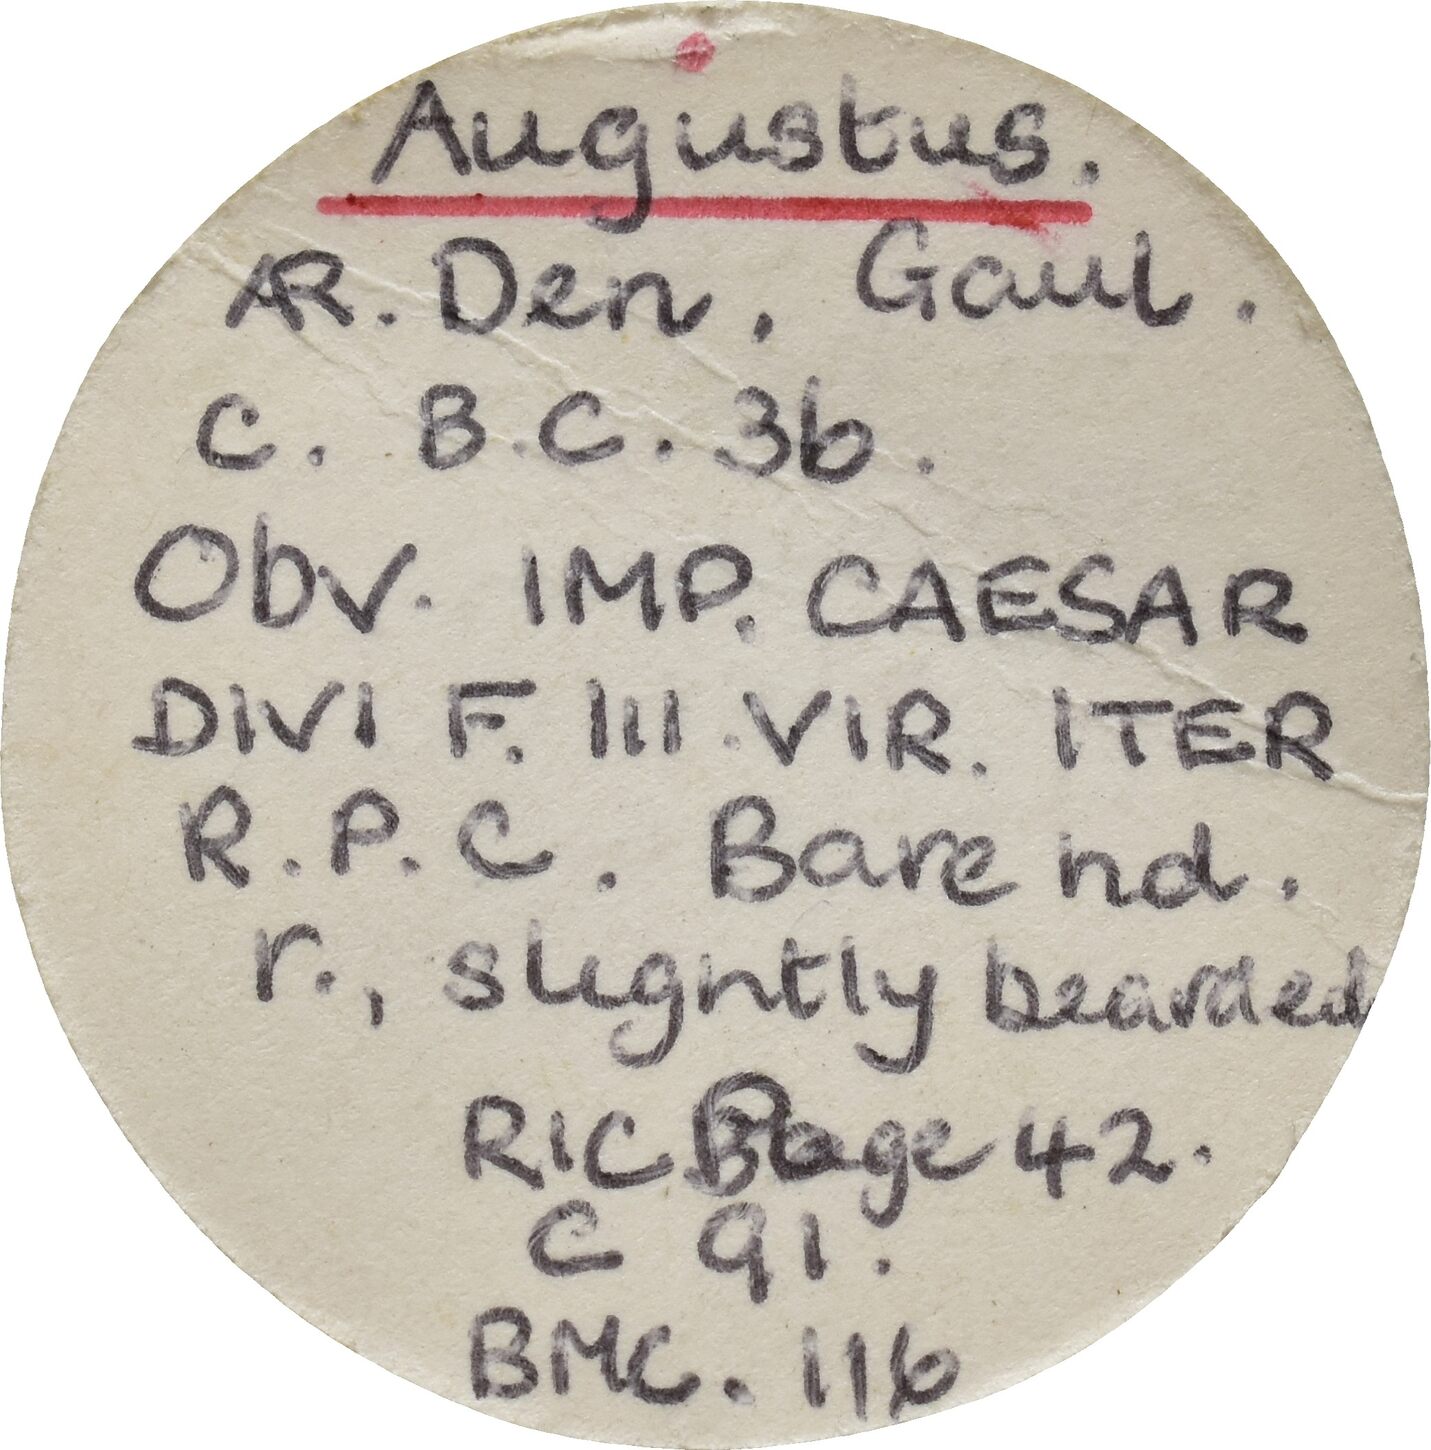 Augustus.
AR. Den, Gaul.
C. B.C. 36.
Obv. IMP. CAESAR
DIVI F. III.VIR. ITER
R.P.C. Bare hd.
r., slightly bearded
RIC Page 42.
C 91.
BMC. 116